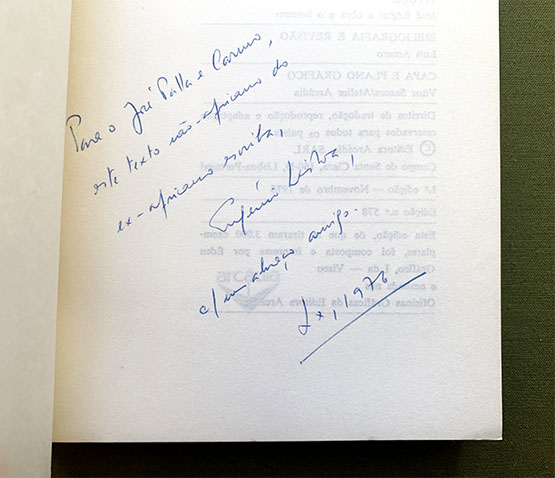 Para o José Palla e Carmo,
este texto não-africano do
ex-africano escriba,
Eugénio Lisboa,
c/ um abraço amigo.
Lx, 1976
José Régio: a obra e o homem
BIBLIOGRAFIA E REVISÃO
Luís Amaro
CAPA E PLANO GRÁFICO
Vitor Santos/Atelier Arcádia
Direitos de tradução, reprodução e
reservados para todos os
© Editora Arcádia, SARL
Campo de Santa Clara, Lisboa-Portugal
1.ª edição — Novembro de
Edição n.º 578
Esta edição, de que se tiraram
plares, foi composta e impressa por Eden
Gráfico, Lda — Viseu
e
Oficinas Gráficas da Editora